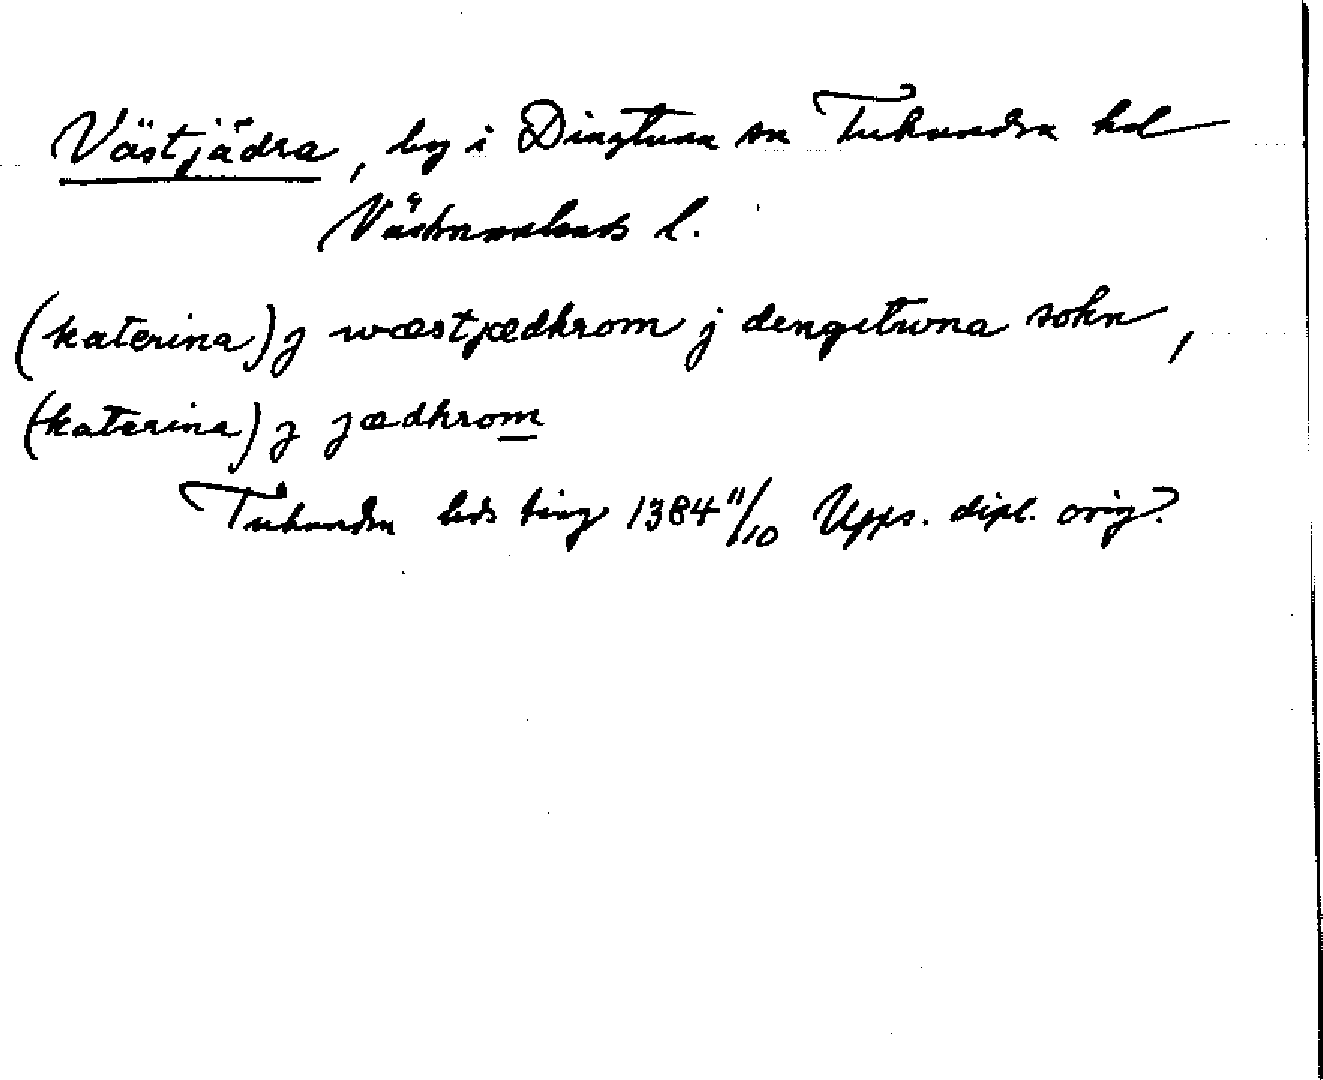 Västjädra, by i Dingtuna sn Tuhundra hd
Västmanlands l.
(katerina) j wæstjædhrom j dengetwna sokn,
(katerina) j jædhrom
Tuhundra hds ting 1384 11/10 Upps. dipl. orig.